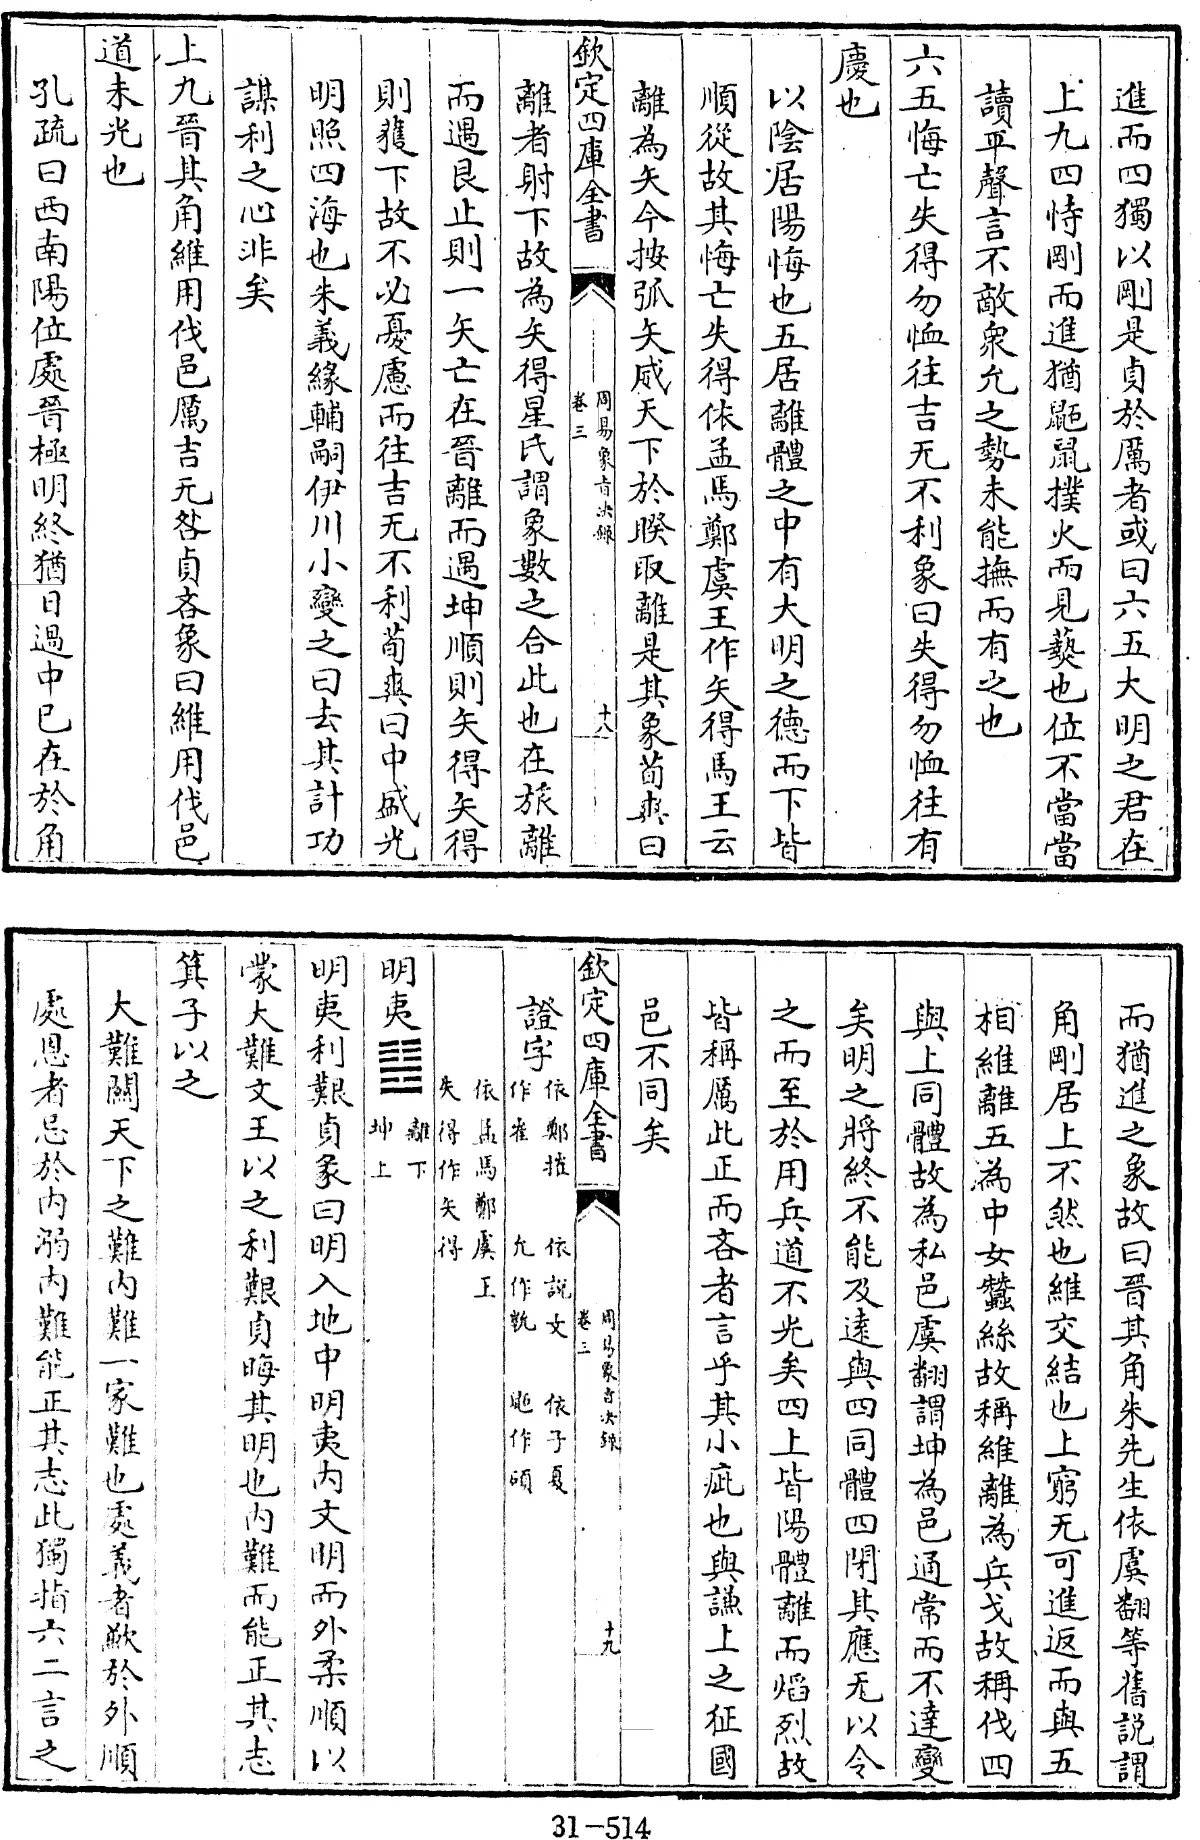 進而四獨以剛是貞於厲者或曰六五大明之君在
上九四恃剛而進猶鼫鼠撲火而見藝也位不當當
讀平聲言不敵衆允之勢未能撫而有之也
六五悔亡失得勿恤往吉无不利象曰失得勿恤往有
慶也
以陰居陽悔也五居離體之中有大明之德而下皆
順從故其悔亡失得依孟馬鄭虞王作矢得馬王云
離為矢今按弧矢威天下於睽取離是其象荀爽曰
欽定四庫全書
周易象旨決錄
卷三
十八
離者射下故為矢得星氏謂象數之合此也在旅離
而遇艮止則一矢亡在晉離而遇坤順則矢得矢得
則獲下故不必憂慮而往吉无不利荀爽曰中盛光
明照四海也朱義緣輔嗣伊川小變之曰去其計功
謀利之心非矣
上九晉其角維用伐邑厲吉无咎貞吝象曰維用伐邑
道未光也
孔疏曰西南陽位處晉極明終猶日過中已在於角
而猶進之象故曰晉其角朱先生依虞翻等舊說謂
角剛居上不然也維交結也上窮无可進返而與五
相維離五為中女蠶絲故稱維離為兵戈故稱伐四
與上同體故為私邑虞翻謂坤為邑通常而不達變
矣明之將終不能及遠與四同體四閉其應无以令
之而至於用兵道不光矣四上皆陽體離而焰烈故
皆稱厲此正而吝者言乎其小疵也與謙上之征國
邑不同矣
欽定四庫全書
周易象旨決錄
卷三
十九
證字
依鄭摧
作崔
依說文
允作㽙
依子夏
鼫作碩
依孟馬鄭虞王
失得作矢得
明夷䷣
離下
坤上
明夷利艱貞彖曰明入地中明夷內文明而外柔順以
蒙大難文王以之利艱貞晦其明也內難而能正其志
箕子以之
大難關天下之難內難一家難也處義者歉於外順
處恩者忌於內溺內難能正其志此獨指六二言之
31-514